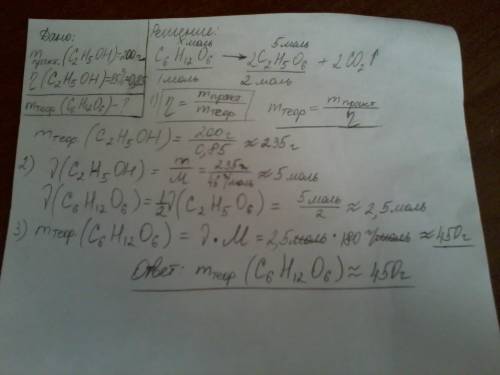 Дано:
mпракт.(C2H5OH)=200г
η(C2H5OH)=85%=0,85
mтеор(C6H12O6)-?
Решение:
xмоль 5моль
C6H12O6 → 2C2H5O6 + 2CO2↑
1моль 2моль
1) η = mпракт/mтеор mтеор = mпракт/η
mтеор.(C2H5OH) = 200г/0,85 ≈ 235г
2) ν(C2H5OH) = m/M = 235г/46г/моль ≈ 5моль
ν(C6H12O6) = 1/2ν(C2H5O6) = 5моль/2 ≈ 2,5моль
3) mтеор(C6H12O6) = ν·M = 2,5моль·180г/моль ≈ 450г
Ответ: mтеор(C6H12O6) ≈ 450г